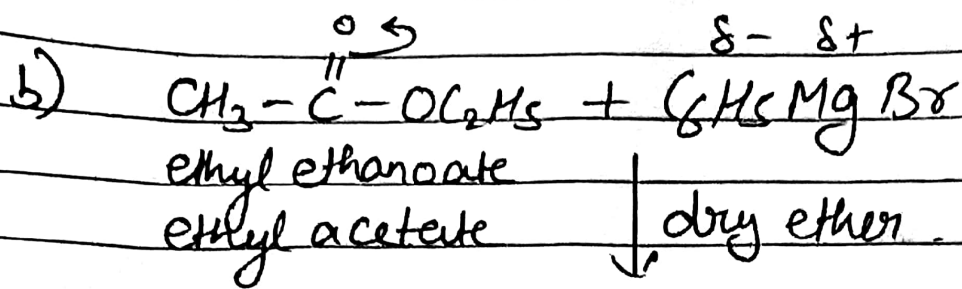 O δ- δ+
b) CH₃-C-OC₂H₅ + C₆H₅MgBr
ethyl ethanoate
ethyl acetete dry ether.